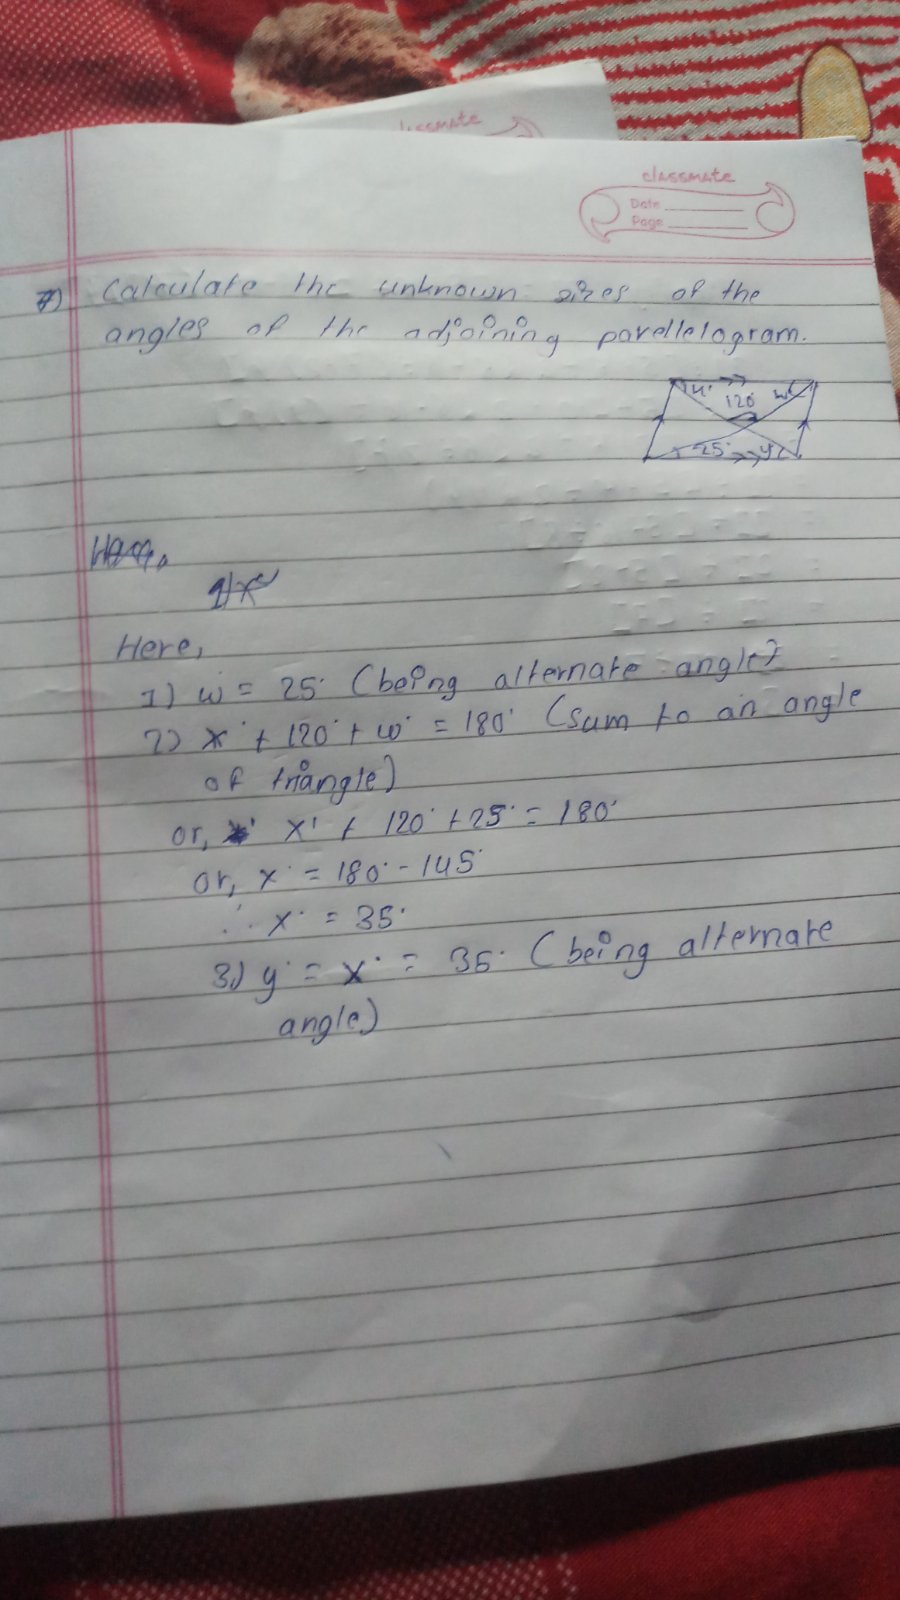 classmate
classmate
Date
Page
7) Calculate the unknown sizes of the
angles of the adjoining parellelogram.
x°
120°
w°
25°
y°
Here,
1) w = 25° (being alternate angle)
2) x° + 120° + w° = 180° (sum to an angle
of triangle)
or, x° + 120° + 25° = 180°
or, x° = 180° - 145°
∴ x° = 35°
3) y° = x° = 35° (being alternate
angle)